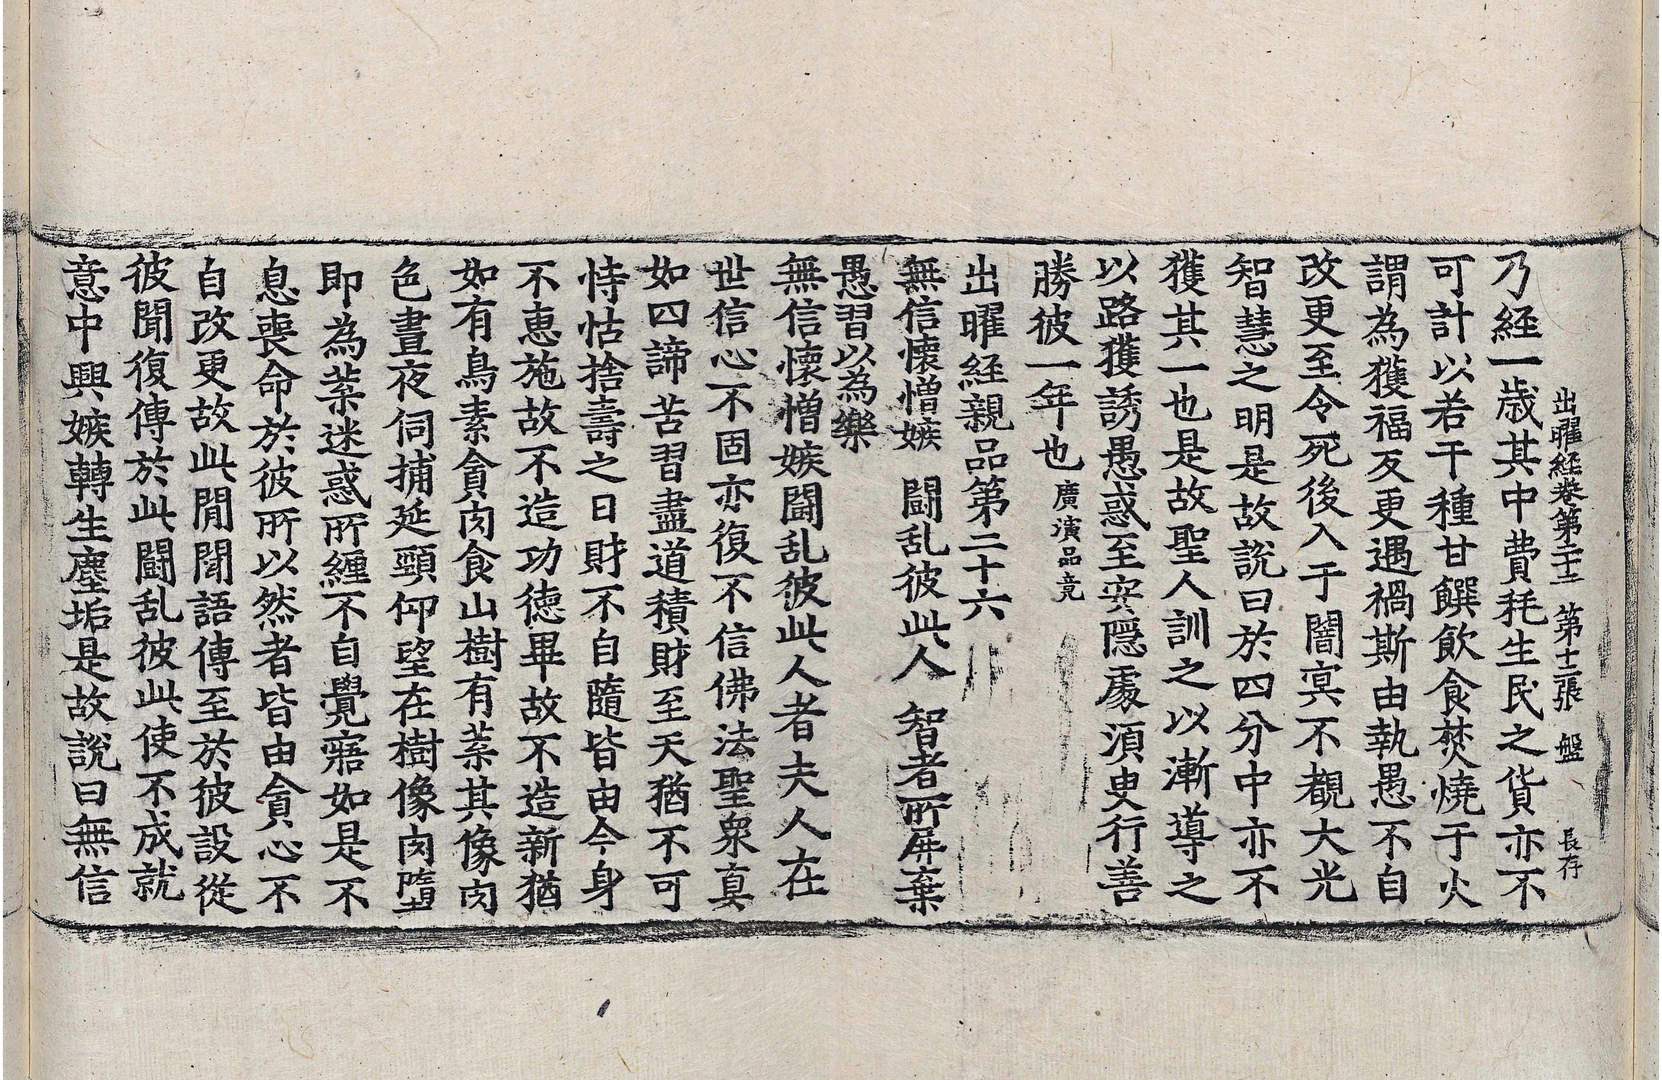 出曜經卷第二十三 第十二張 盤 長存
乃經一歲其中費耗生民之貨亦不
可計以若干種甘饌飲食焚燒于火
謂為獲福反更遇禍斯由執愚不自
改更至令死後入于闇冥不覩大光
智慧之明是故說曰於四分中亦不
獲其一也是故聖人訓之以漸導之
以路獲誘愚惑至安隱處須臾行善
勝彼一年也廣演品竟
出曜經親品第二十六
無信懷憎嫉 闘乱彼此人 智者所屏棄
愚習以為樂
無信懷憎嫉闘乱彼此人者夫人在
世信心不固亦復不信佛法聖衆真
如四諦苦習盡道積財至天猶不可
恃怙捨壽之日財不自隨皆由今身
不恵施故不造功德畢故不造新猶
如有鳥素貪肉食山樹有菓其像肉
色晝夜伺捕延頸仰望在樹像肉墮
即為菓迷惑所纏不自覺寤如是不
息喪命於彼所以然者皆由貪心不
自改更故此閒聞語傳至於彼設從
彼聞復傳於此闘乱彼此使不成就
意中興嫉轉生塵垢是故說曰無信